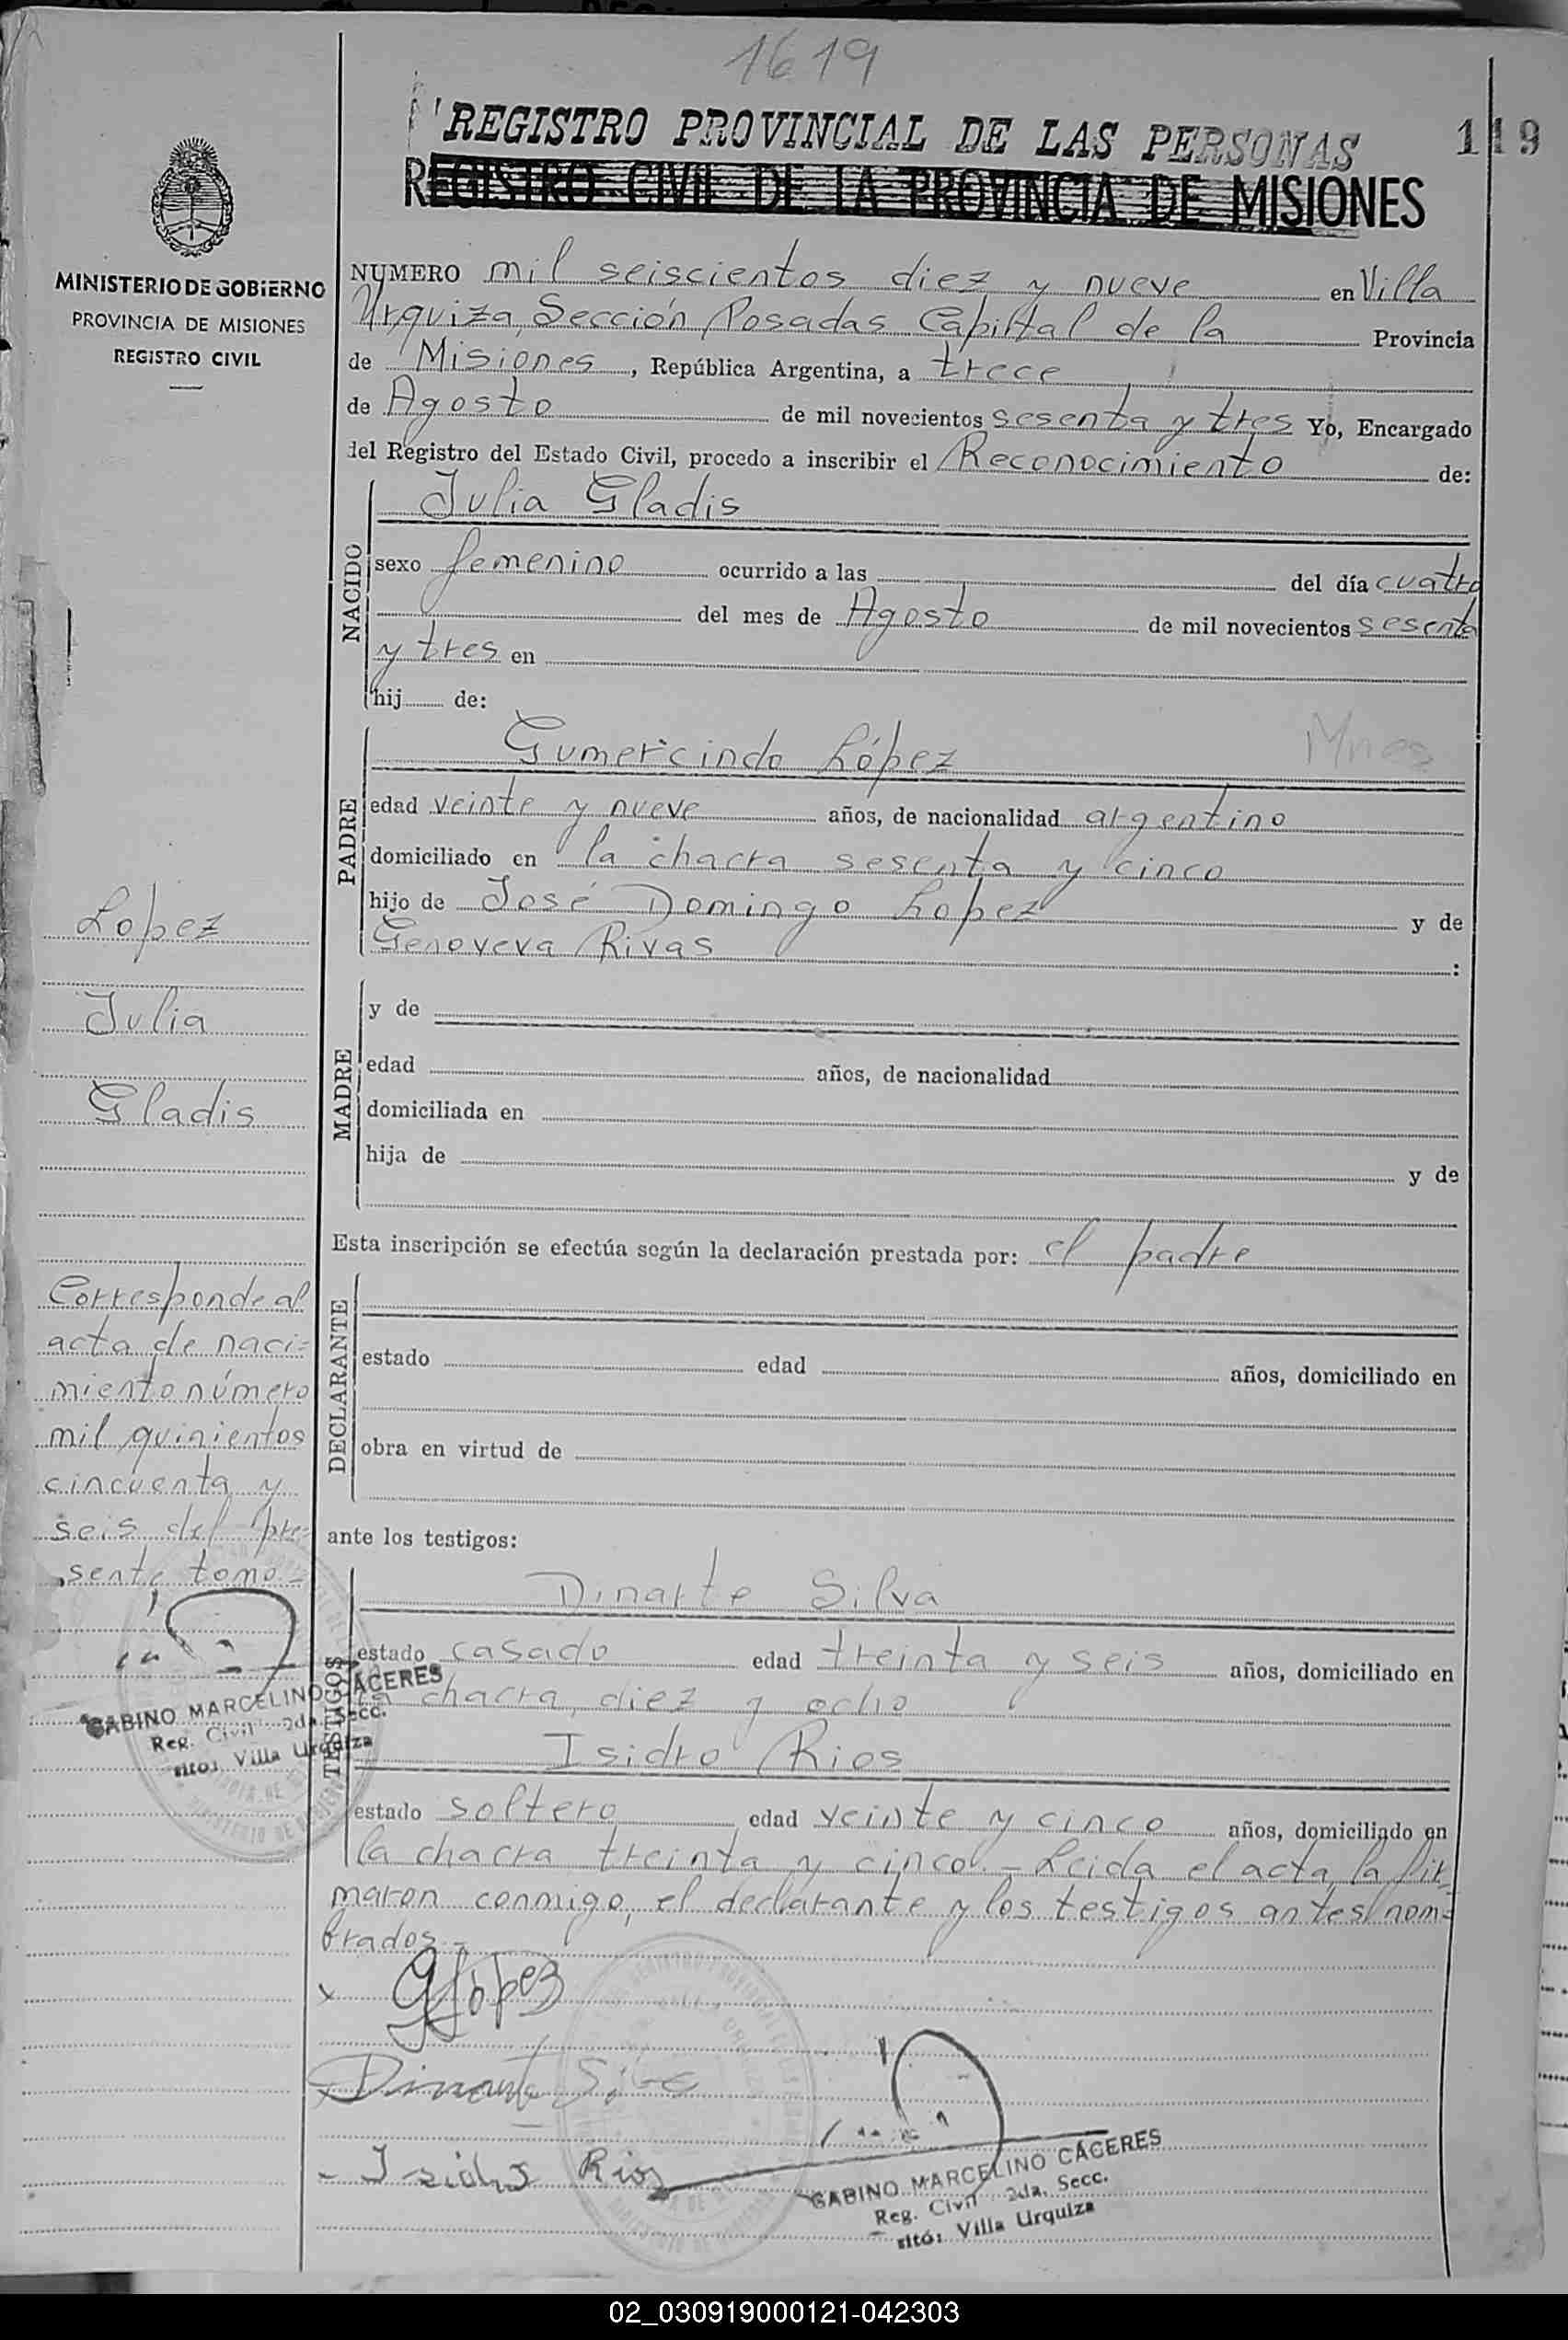 1619
REGISTRO PROVINCIAL DE LAS PERSONAS
119
REGISTRO CIVIL DE LA PROVINCIA DE MISIONES
MINISTERIO DE GOBIERNO
PROVINCIA DE MISIONES
REGISTRO CIVIL
NUMERO mil seiscientos diez y nueve en Villa
Urquiza, Sección Posadas Capital de la Provincia
de Misiones, República Argentina, a trece
de Agosto de mil novecientos sesenta y tres Yo, Encargado
del Registro del Estado Civil, procedo a inscribir el Reconocimiento de:
NACIDO
Julia Gladis
sexo femenino ocurrido a las del día cuatro
del mes de Agosto de mil novecientos sesenta
y tres en
hij de:
PADRE
Gumercindo López
Mnes
edad veinte y nueve años, de nacionalidad argentino
domiciliado en la chacra sesenta y cinco
hijo de José Domingo Lopez y de
Genoveva Rivas :
MADRE
y de
edad años, de nacionalidad
domiciliada en
hija de y de
Esta inscripción se efectúa según la declaración prestada por: el padre
DECLARANTE
estado edad años, domiciliado en
obra en virtud de
ante los testigos:
TESTIGOS
Dinarte Silva
estado casado edad treinta y seis años, domiciliado en
la chacra, diez y ocho
Isidro Rios
estado soltero edad veinte y cinco años, domiciliado en
la chacra treinta y cinco.- Leida el acta, la fir-
maron conmigo, el declarante y los testigos antes nom=
brados.-
Lopez
Julia
Gladis
Corresponde al
acta de naci=
miento número
mil quinientos
cincuenta y
seis del pre=
sente tomo.-
GABINO MARCELINO CACERES
Reg. Civil 2da. Secc.
Villa Urquiza
x GLópez
Dinarte Silva
- Isidro Rios
GABINO MARCELINO CACERES
Reg. Civil 2da. Secc.
Villa Urquiza
02_030919000121-042303